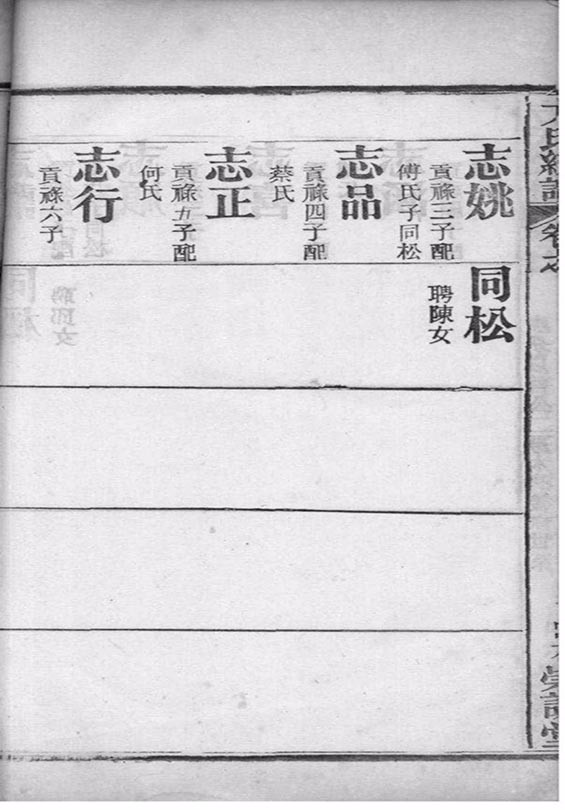 志姚
貢祿三子配
傅氏子同松
同松
聘陳女
志品
貢祿四子配
蔡氏
志正
貢祿五子配
何氏
志行
貢祿六子